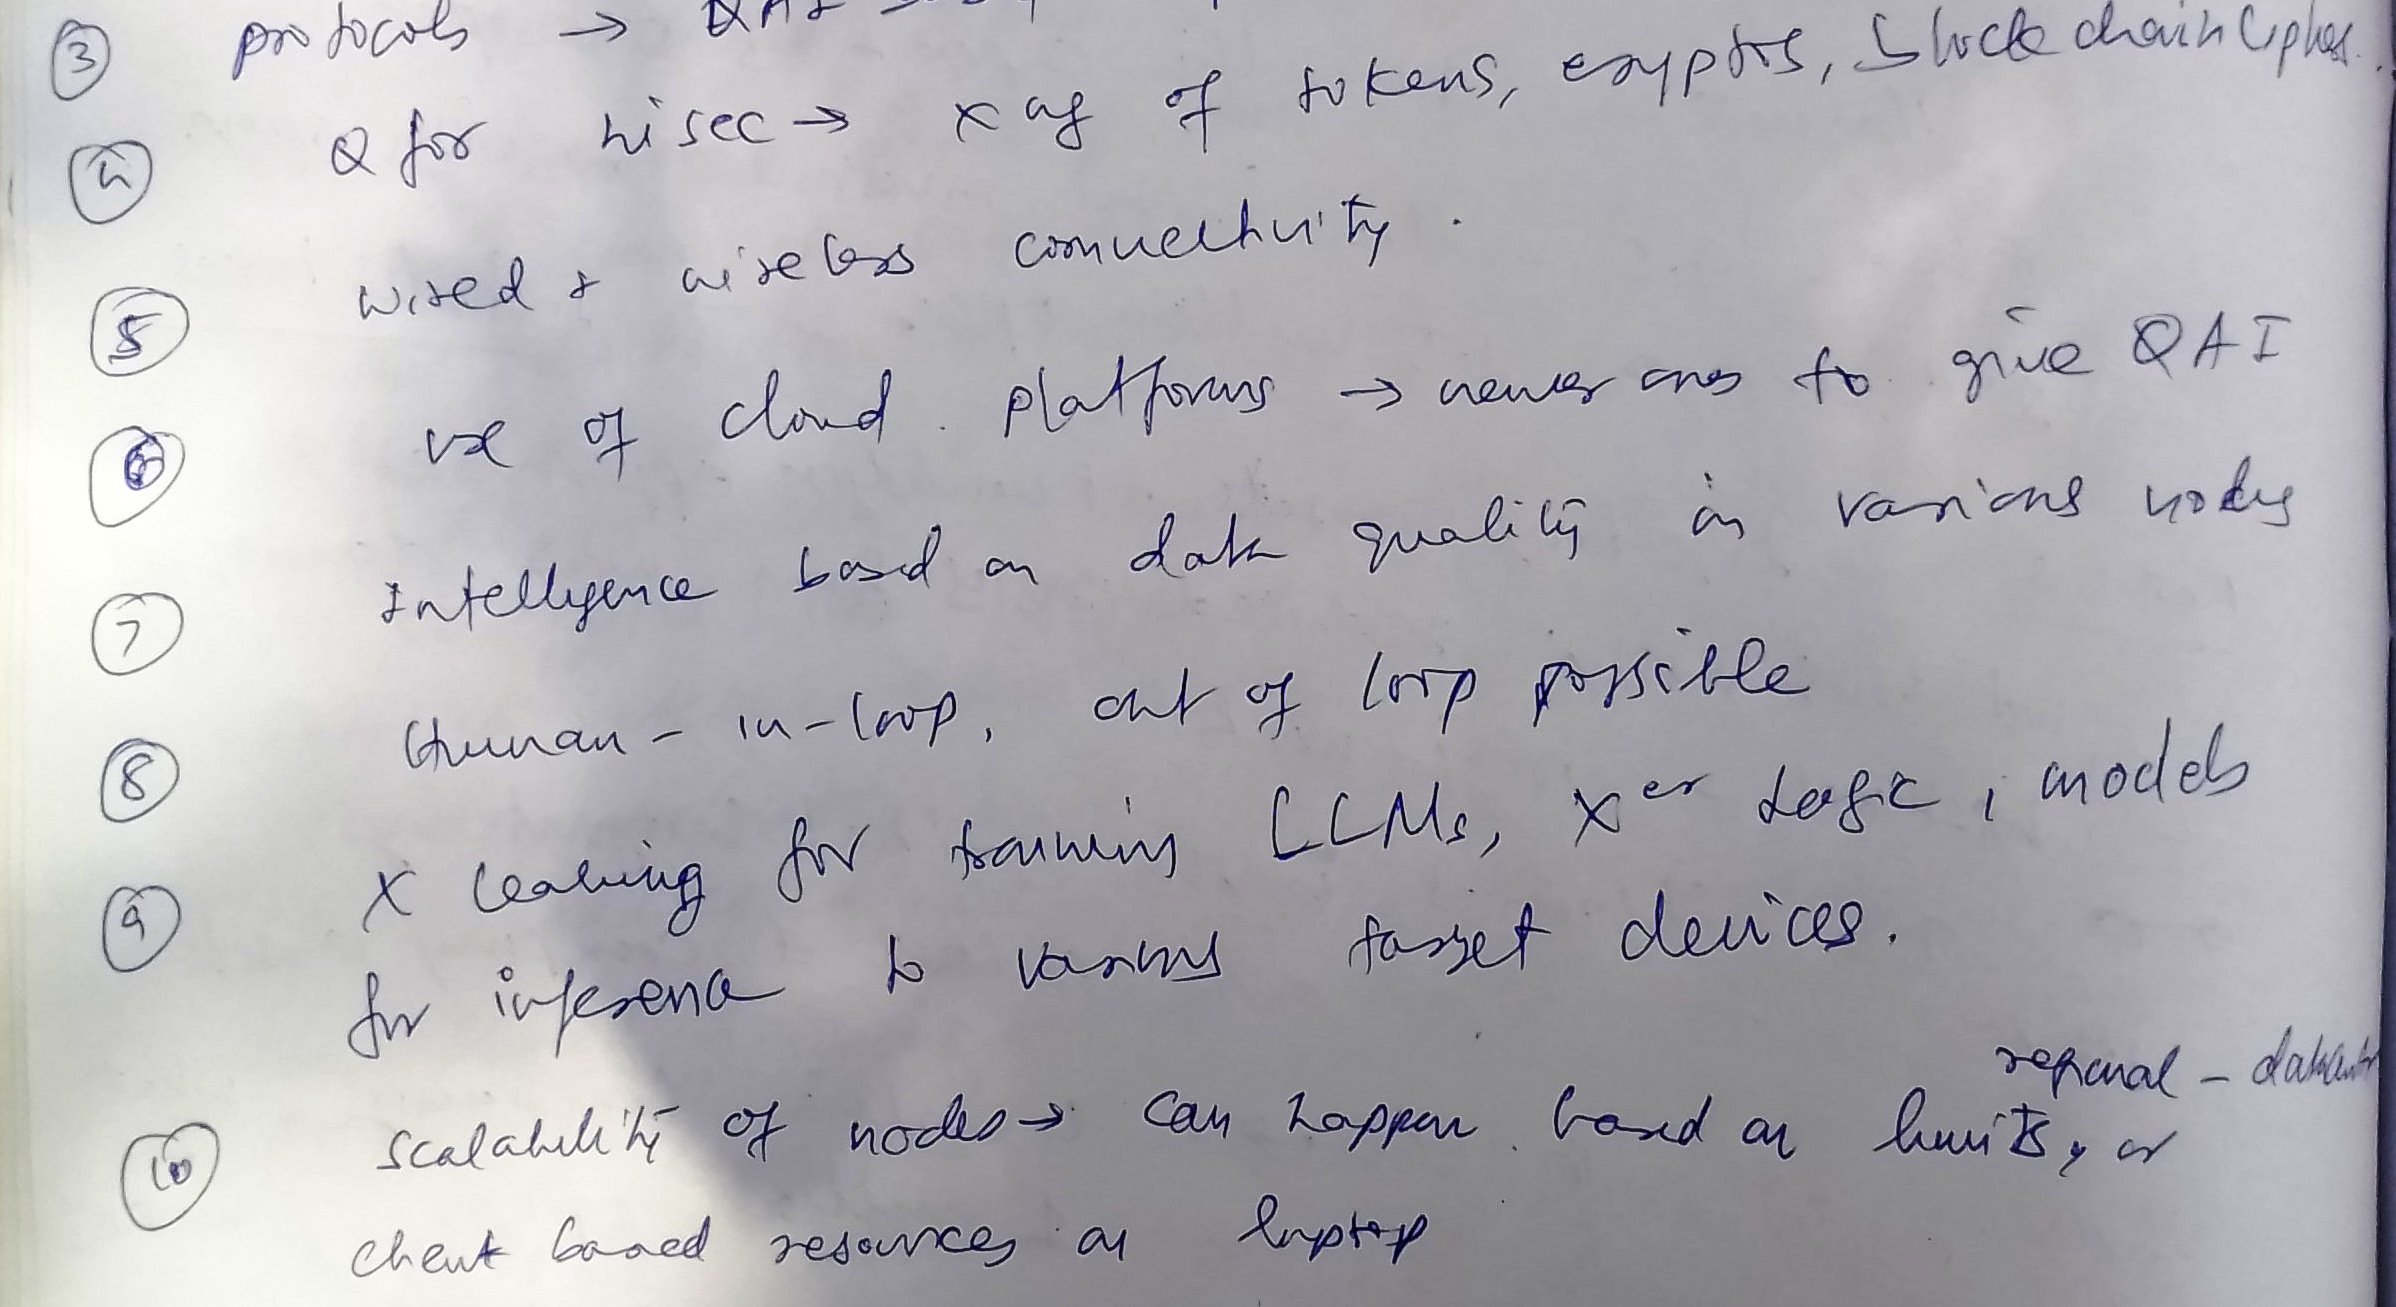 ③ protocols →
④ Q for hisec → x of tokens, cryptos, blockchain cipher
⑤ wired & wireless connectivity.
⑥ use of cloud platforms → to give QAI
⑦ Intelligence based on data quality in various nodes
⑧ Human-in-loop, out of loop possible
⑨ X learning for training LLMs, Xer Logic, models
for inference to various target devices.
regional - datacenter
⑩ scalability of nodes → can happen based on limits, or
client based resources on laptop